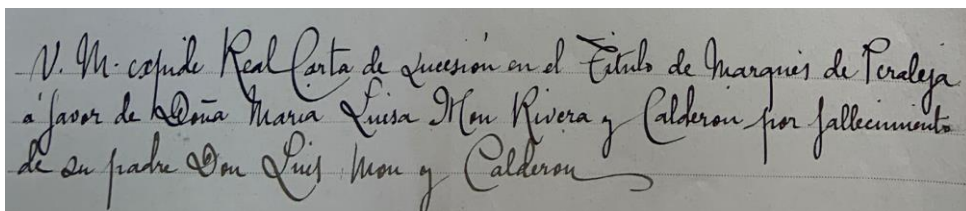 V. M. expide Real Carta de sucesión en el Titulo de Marqués de Peraleja
á favor de Doña Maria Luisa Mon Rivera y Calderon por fallecimiento
de su padre Don Luis Mon y Calderon